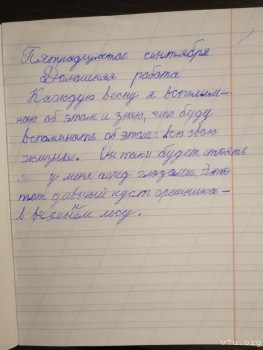 Пятнадцатое сентября
Домашняя работа
Каждую весну я вспоми-
наю об этом и знаю, что буду
вспоминать об этом всю свою
жизнь. Он таки будет стоять
у меня перед глазами, это
тот дивный куст орешника -
в весеннем лесу.
vfu.org